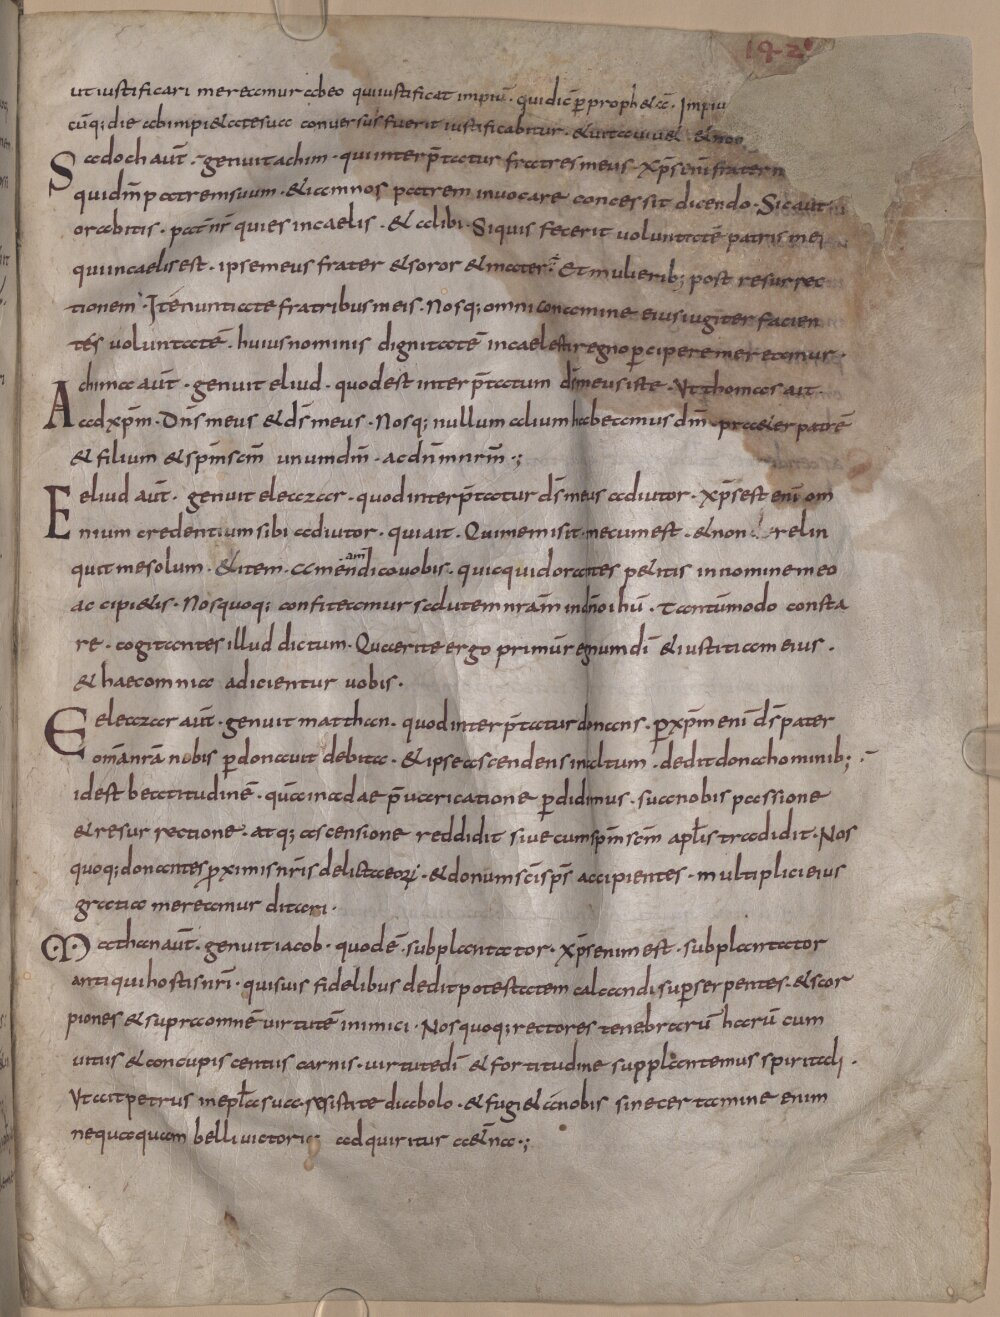 142
ut iustificari mereamur abeo qui iustificat impiũ · qui dic̃ p̱ prophetã · Impiu
cũq; die abimpietatesua conversus fuerit iustificabitur · & uita uiuet · & non
Sadoch aut̃ · genuit achim · qui interp̃tatur fratres meus · xp̃s eni fratern
quidm̃ patrem suum · & iam nos patrem invocare concessit dicendo · Sic aut
orabitis · pat̃ nr̃ qui es in caelis · & alibi · Siquis fecerit uoluntatẽ patris mei
qui in caelis est · ipse meus frater & soror & mater · Et mulierib; post resurrec
tionem · Ite nuntiate fratribus meis · Nosq; omni conamine eius iugiter facien
tes uoluntatẽ · huius nominis dignitatẽ in caelesti regno p̱cipere mereamur ·
Achim aut̃ · genuit eliud · quod est interp̃tatum ds̃ meus iste · Ut thomas ait
ad xp̃m · Dñs meus & ds̃ meus · Nosq; nullum alium habeamus dm̃ · praeter patrẽ
& filium & sp̃m scm̃ unum dm̃ · ac dn̄m nr̄m ·;
Eeliud aut̃ · genuit eleazar · quod interp̃tatur ds̃ meus adiutor · xp̃s est eni om
nium credentium sibi adiutor · qui ait · Qui me misit mecum est · & non relin
quit me solum · & item · amen dico uobis · quicquid orantes petitis in nomine meo
accipietis · Nos quoq; confiteamur salutem nr̄am in dn̄o ihũ · Tantũmodo consta
re · cogitantes illud dictum · Querite ergo primũ regnum dĩ & iustitiam eius ·
& haec omnia adicientur uobis ·
Eeleazar aut̃ · genuit matthan · quod interp̃tatur donans · p̱ xp̃m eni ds̃ pater
om̃a nr̃a nobis p̱donauit debita · & ipse ascendens in altum · dedit dona hominib; ·
id est beatitudinẽ · quã in adae p̃uaricatione p̱didimus · sua nobis passione
& resurrectione · atq; ascensione reddidit siue cum sp̃m scm̃ apl̃is tradidit · Nos
quoq; donantes p̱ximis nr̃is delicta eorꝝ · & donum sc̃i sp̃s accipientes · multiplici eius
gratia mereamur ditari ·
Matthan aut̃ · genuit iacob · quod ẽ · subplantator · xp̃s enim est · subplantator
antiqui hostis nr̃i · qui suis fidelibus dedit potestatem calcandi sup̱ serpentes · & scor
piones & supra omnẽ uirtutẽ inimici · Nos quoq; rectores tenebrarũ harũ cum
uitiis & concupiscentiis carnis · uirtute dĩ & fortitudine supplantemus spiritali ·
Ut ait petrus in epl̃a sua · resistite diabolo · & fugiet a nobis sine certamine enim
nequaquam belli uictoria adquiritur aet̃na ·;